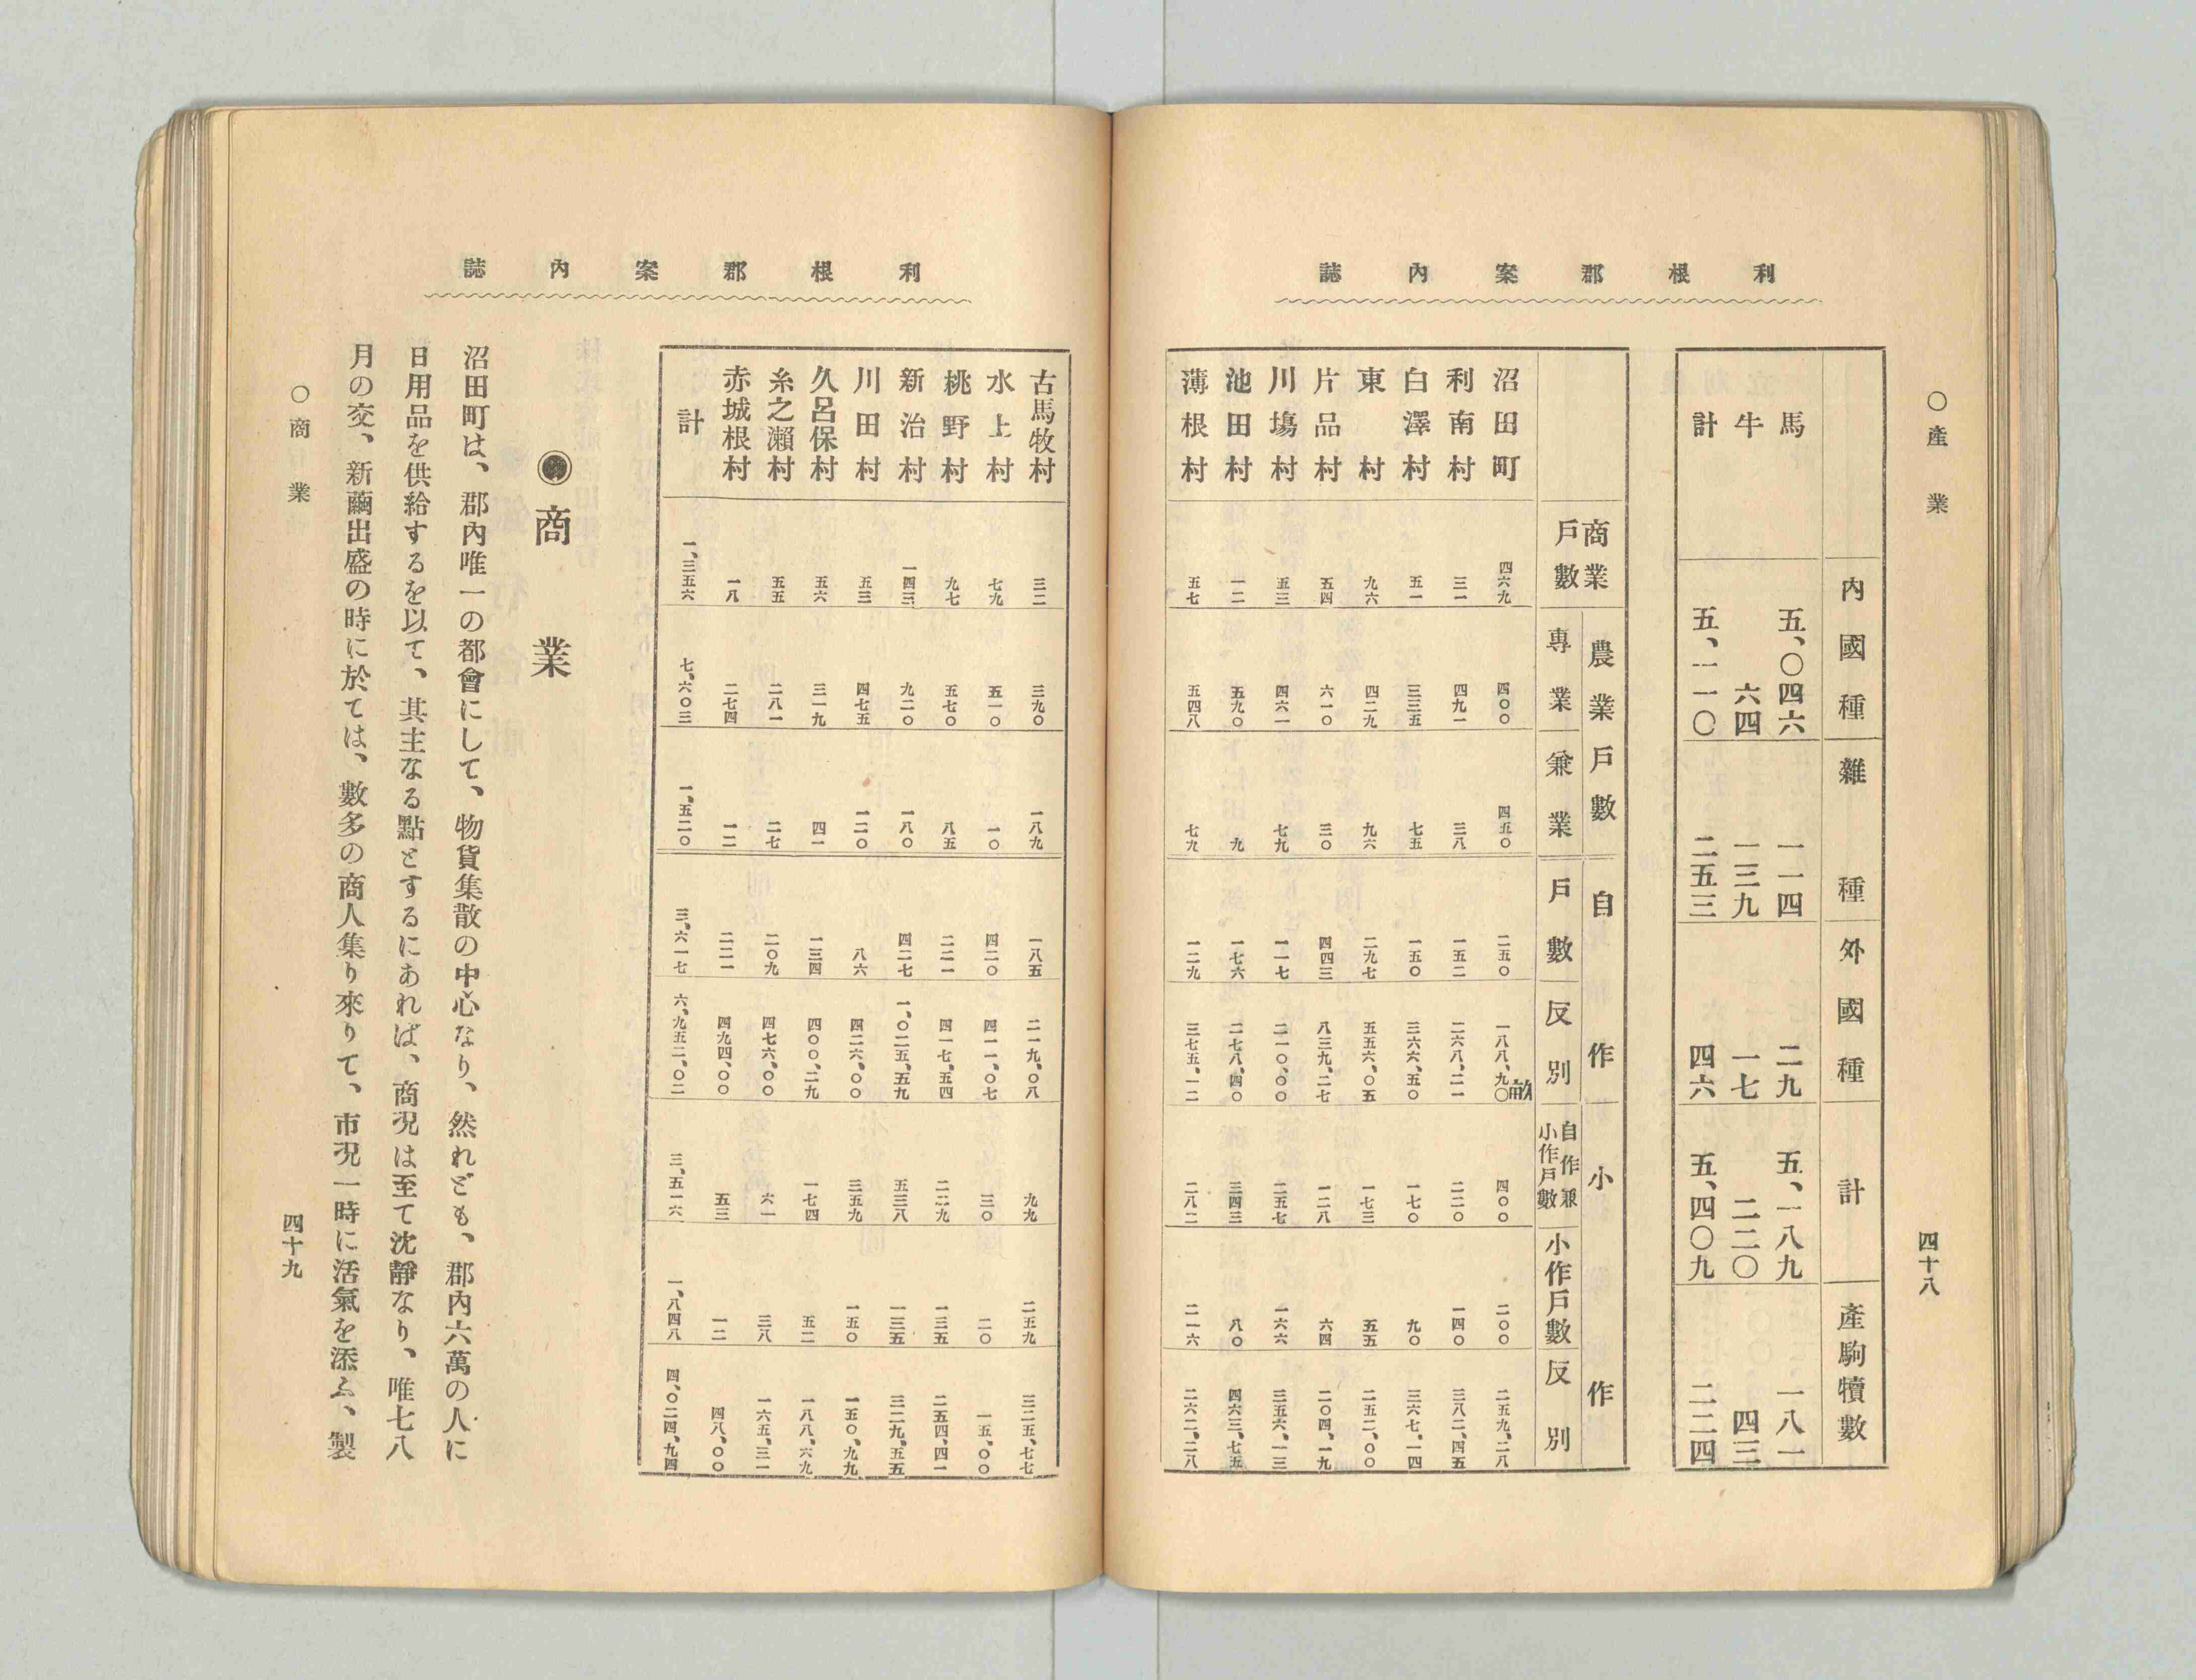 利根郡案內誌
○產業
四十八
內國種 雜種 外國種 計 產駒犢數
馬 五、〇四六 一一四 二九 五、一八九 一八一
牛 六四 一三九 一七 二二〇 四三
計 五、一一〇 二五三 四六 五、四〇九 二二四
商業戶數 農業戶數 自作 小作
專業 兼業 戶數 反別 自作兼小作戶數 小作戶數 反別
沼田町 四六九 四〇〇 四五〇 二五〇 一八八、九〇畝 四〇〇 二〇〇 二五九、二八
利南村 三一 四九一 三八 一五二 二六八、二一 二二〇 一四〇 三八二、四五
白澤村 五一 三三五 七五 一五〇 三六六、五〇 一七〇 九〇 三六七、一四
東村 九六 四二九 九六 二九七 五五六、〇五 一七三 五五 二五二、〇〇
片品村 五四 六一〇 三〇 四四三 八三九、二七 一二八 六四 二〇四、一九
川塲村 五三 四六一 七九 一一七 二一〇、〇〇 二五七 一六六 三五六、一三
池田村 一二 五九〇 九 一七六 二七八、四〇 三四三 八〇 四六三、七五
薄根村 五七 五四八 七九 一二九 三七五、一二 二八二 二一六 二六二、二八
利根郡案內誌
古馬牧村 三二 三九〇 一八九 一八五 二一九、〇八 九九 二五九 三二五、七七
水上村 七九 五一〇 一〇 四二〇 四一一、〇七 三〇 二〇 一五、〇〇
桃野村 九七 五七〇 八五 二二一 四一七、五四 二二九 一三五 二五四、四一
新治村 一四三 九二〇 一八〇 四二七 一、〇二五、五九 五三八 一三五 三二九、五五
川田村 五三 四七五 一二〇 八六 四二六、〇〇 三五九 一五〇 一五〇、九九
久呂保村 五六 三一九 四一 一三四 四〇〇、二九 一七四 五二 一八八、六九
糸之瀨村 五五 二八一 二七 二〇九 四七六、〇〇 六一 三八 一六五、三一
赤城根村 一八 二七四 一二 二二一 四九四、〇〇 五三 一二 四八、〇〇
計 一、三五六 七、六〇三 一、五二〇 三、六一七 六、九五二、〇二 三、五一六 一、八四八 四、〇二四、九四
◉商業
沼田町は、郡內唯一の都會にして、物貨集散の中心なり、然れども、郡內六萬の人に
日用品を供給するを以て、其主なる點とするにあれば、商況は至て沈靜なり、唯七八
月の交、新繭出盛の時に於ては、數多の商人集り來りて、市況一時に活氣を添ふ、製
○商業
四十九